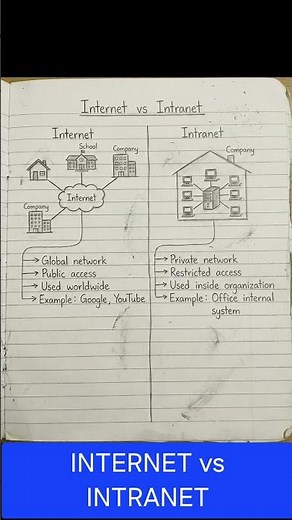 Internet vs Intranet
Internet
School
Company
Internet
Company
Global network
Public access
Used worldwide
Example: Google, YouTube
Intranet
Company
Private network
Restricted access
Used inside organization
Example: Office internal
system
INTERNET vs
INTRANET